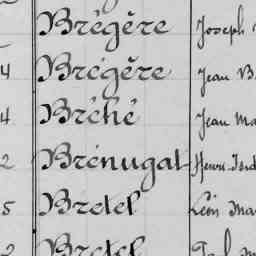 Brégère Joseph
4 Brégère Jean B
4 Bréhé Jean Ma
2 Brénugat Henri
5 Bretel Léon Ma
2 Bretel